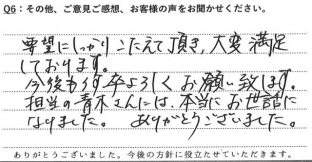 Q6：その他、ご意見ご感想、お客様の声をお聞かせください。
要望にしっかりこたえて頂き、大変満足
しております。
今後も何卒よろしくお願い致します。
担当の青木さんには、本当にお世話に
なりました。ありがとうございました。
ありがとうございました。今後の方針に役立たせていただきます。